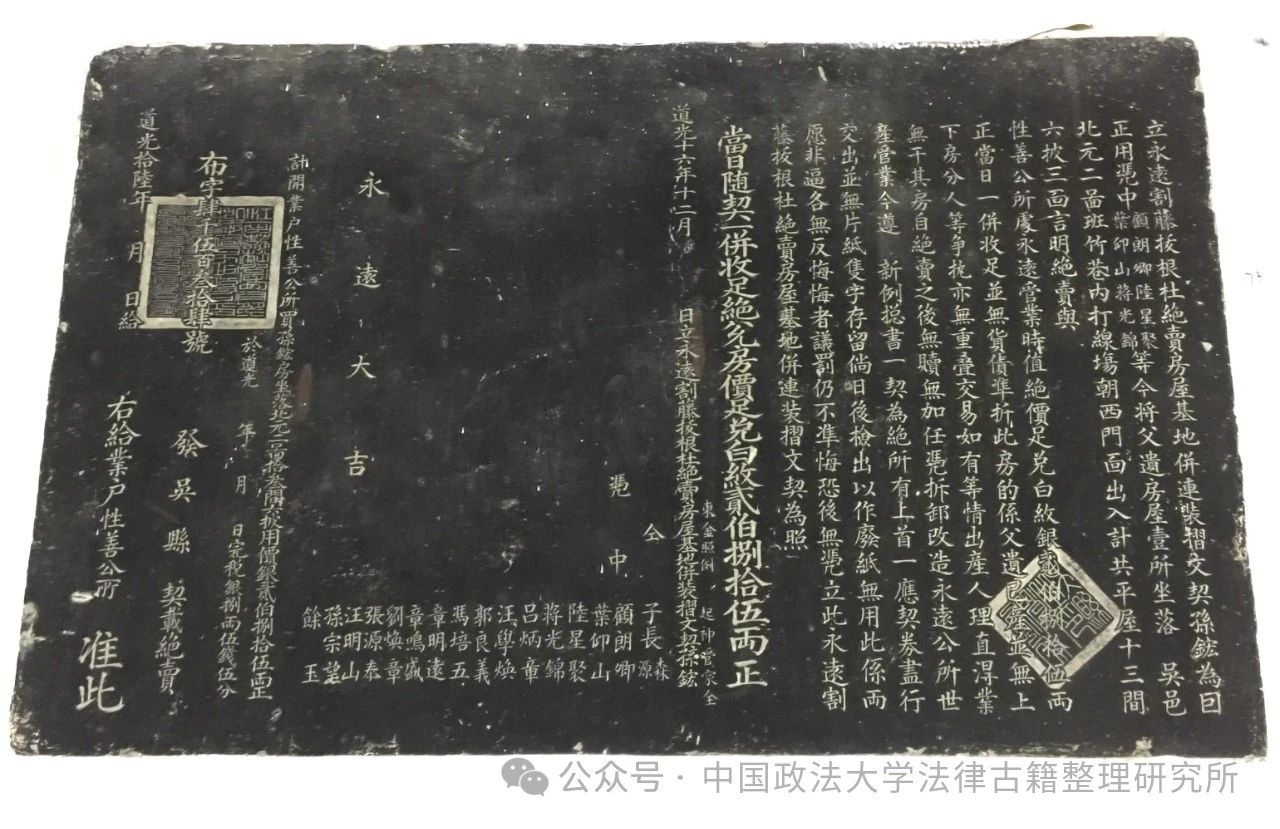 立永遠割藤拔根杜絕賣房屋基地併連裝摺文契孫鋐為因
正用凴中顧朗卿陸星聚葉仰山蔣光錦等今將父遺房屋壹所坐落　吳邑
北元二啚班竹巷內打線場朝西門面出入計共平屋十三間
六披三面言明絕賣與
性善公所處永遠管業時值絕價足兌白紋銀貳伯捌拾伍兩
正當日一併收足並無貨債準折此房的係父遺己產並無上
下房分人等爭抗亦無重叠交易如有等情出産人理直淂業
無干其房自絕賣之後無贖無加任凴拆卸改造永遠公所世
產管業今遵　新例揔書一契為絕所有上首一應契券盡行
交出並無片紙隻字存留倘日後撿出以作廢紙無用此係兩
愿非逼各無反悔悔者議罰仍不準悔恐後無凴立此永遠割
藤拔根杜絕賣房屋基地併連裝摺文契為照
當日隨契一併收足絕兌房價足兌白紋貳伯捌拾伍兩正
道光十六年十二月　日立永遠割藤拔根杜絕賣房屋基地併裝摺文契孫鋐
東金照例　起神管家全
仝　子長森源
凴中　顧朗卿
葉仰山
陸星聚
蔣光錦
呂炳章
汪學煥
郭良義
馮培五
章明遠
章鳴盛
劉煥章
張源泰
汪明山
孫宗望
餘玉
永遠大吉
計開業户性善公所買孫鋐房坐落北元二啚拾叁間六披用價銀貳伯捌拾伍兩正
於道光　年　月　日完稅銀捌兩伍錢伍分
布字肆千伍百叁拾肆號
發吳縣　契載絕賣
道光拾陸年　月　日給
右給業户性善公所　准此
公众号 · 中国政法大学法律古籍整理研究所